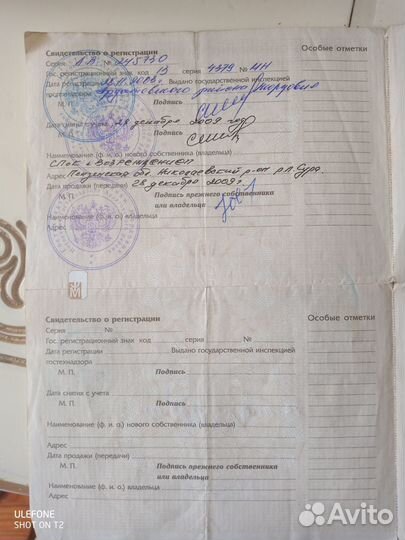 Свидетельство о регистрации Особые отметки
Серия АВ № 245730
Гос. регистрационный знак код 13 серия 4379 НН
Дата регистрации Выдано государственной инспекцией
гостехнадзора района Мордовия
М. П. Подпись
28 декабря 2009 год
М. П. Подпись
Наименование (ф. и. о.) нового собственника (владельца)
СПСК «Возрождение»
Адрес Пензенская обл. Никольский р-он р.п. Сура.
Дата продажи (передачи) 28 декабря 2009 г.
М. П. Подпись прежнего собственника
или владельца
Наименование (ф. и. о.) владельца
Адрес
Свидетельство о регистрации Особые отметки
Серия №
Гос. регистрационный знак код серия №
Дата регистрации Выдано государственной инспекцией
гостехнадзора
М. П. Подпись
Дата снятия с учета
М. П. Подпись
Наименование (ф. и. о.) нового собственника (владельца)
Адрес
Дата продажи (передачи)
М. П. Подпись прежнего собственника
или владельца
Наименование (ф. и. о.) владельца
Адрес
ULEFONE
SHOT ON T2
Avito